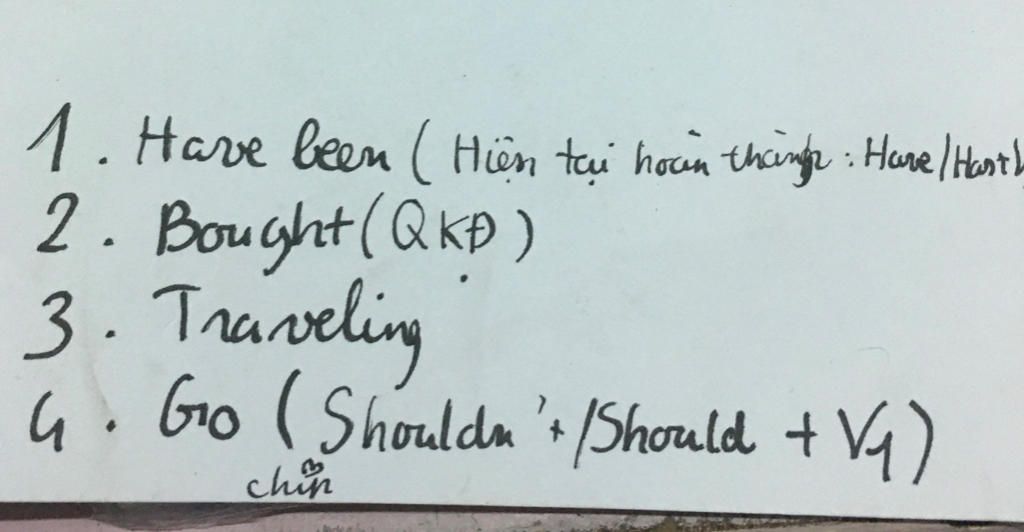 1. Have been ( Hiện tại hoàn thành : Have/Has +
2. Bought (QKĐ)
3. Traveling
4. Go ( Shouldn't /Should + V1)
chin